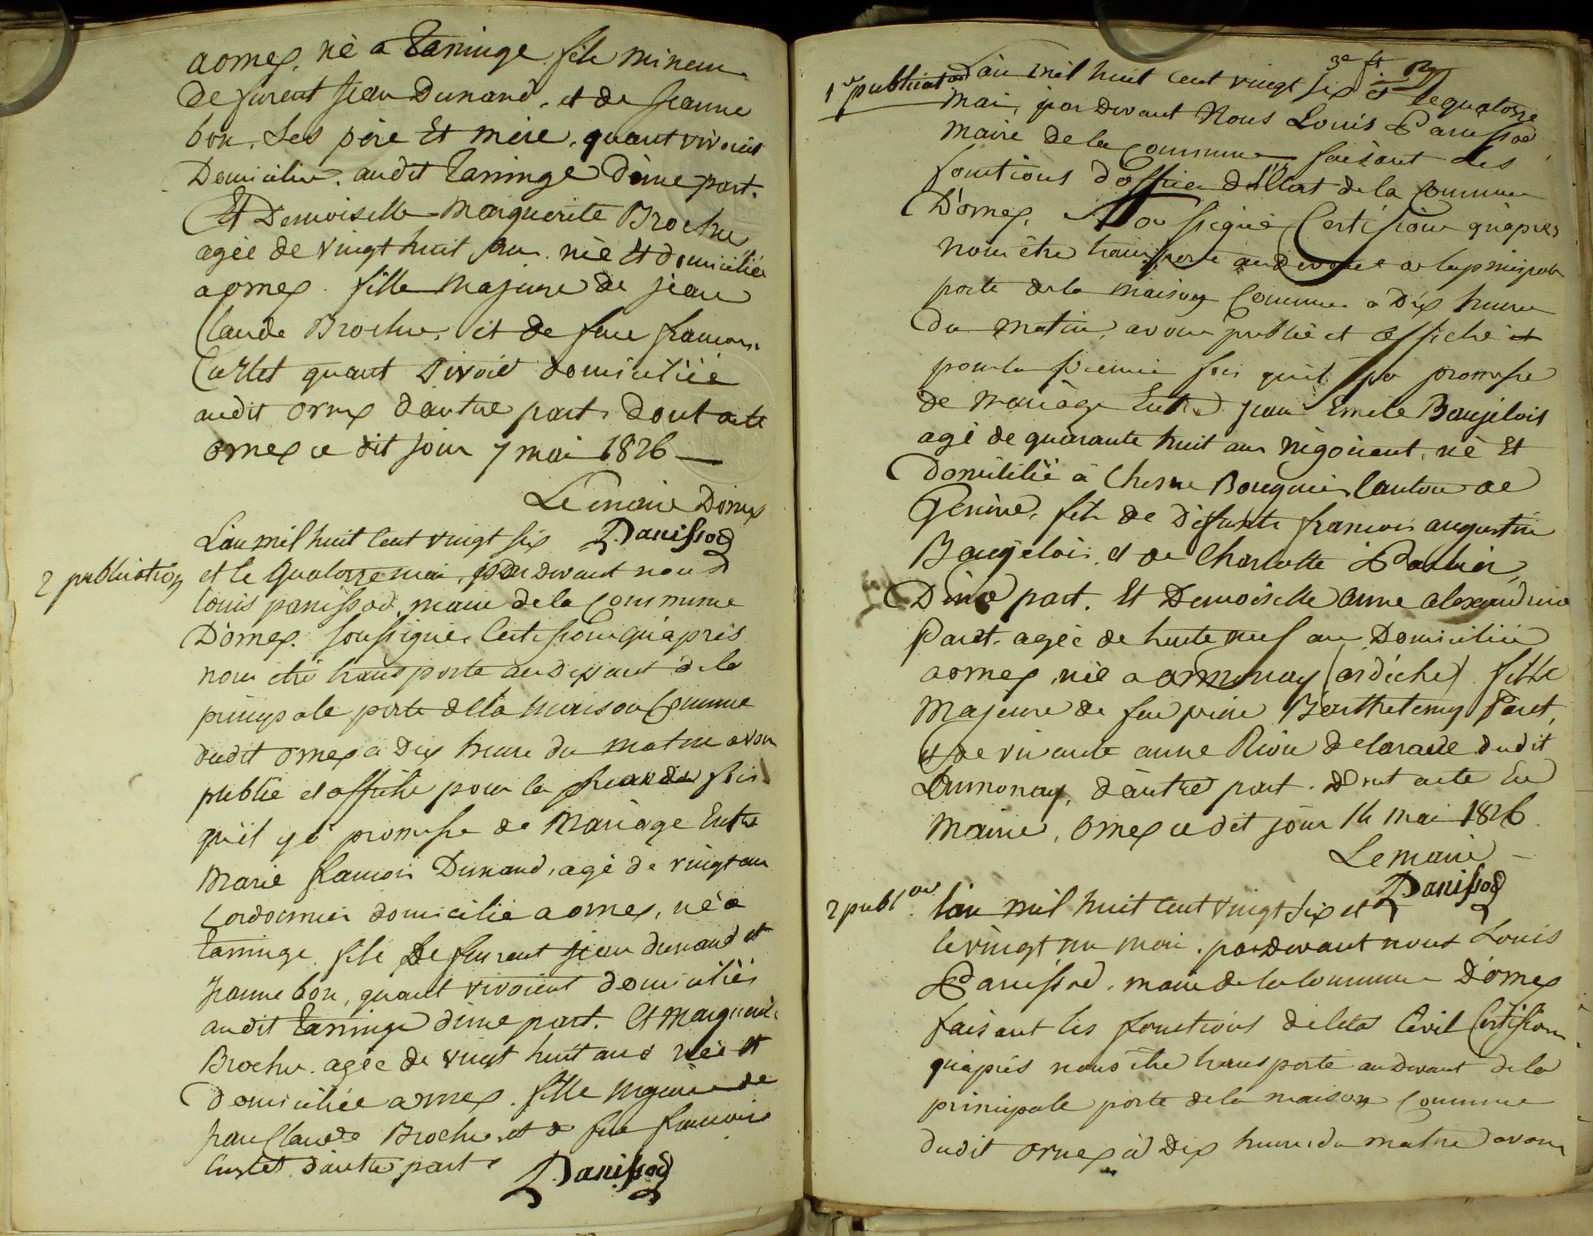 aornex, né a Taninge fils mineur
de furent jean Dunand, et de jeanne
bon. Ses père Et mère, quant vivoient
Domicilies audit Taninge d'une part.
Et Demoiselle Marguerite Broche
agée de vingt huit ans. née Et domiciliée
aornex. fille Majeure de jean
Claude Broche, et de feue francoise
Curlet quant vivoit domiciliée
audit ornex d'autre part. Dont acte
ornex ce dit jour 7 mai 1826
Le maire D'ornex
Panissod
2 publication
L'an mil huit cent vingt six
et le Quatorze mai, par Devant nous
louis panissod, maire de la Commune
D'ornex. soussigné. Certifions qu'après
nous être transporté au devant de la
principale porte de la maison Commune
dudit ornex a Dix heure du matin avons
publié et affiché pour la seconde fois
qu'il y a promesse de Mariage Entre
Marie francois Dunand, agé de vingt ans
Cordonnier domicilié a ornex, né a
Taninge. fils De furent jean dunand et
jeanne bon, quant vivoient domiciliés
audit Taninge d'une part. Et Marguerite
Broche. agée de vingt huit ans née et
Domiciliée aornex. fille majeure de
jean Claude Broche et de feue francoise
Curlet d'autre part
Panissod
1re publication
L'an mil huit cent vingt six et lequatorze
mai, par devant Nous Louis Panissod
maire de la Commune faisant les
fonctions d'officier de l'Etat de la Commune
D'ornex, Soussigné, Certifions qu'après
nous être transporté au devant de la principale
porte de la maison Commune a Dix heures
du matin, avons publié et affiché et
pour la premiere fois qu'il y a promesse
de mariage Entre jean Emile Baujelois
agé de quarante huit ans négociant, né Et
Domicilié à Chesne Bougerie Canton de
Genève, fils de Défunts francois augustin
Baujelois, et de Charlotte
D'une part. Et Demoiselle anne alexandrine
Paret. agée de trente neuf ans Domiciliée
aornex, née a annonay (ardèche) fille
Majeure de feu pierre Barthelemy Paret,
et de vivante anne Riou delarade dudit
annonay, d'autre part. Dont acte En
Mairie, ornex ce dit jour 14 mai 1826.
Le maire
Panissod
2 publion
l'an mil huit cent vingt six et
le vingt un mai. par devant nous Louis
Panissod, maire de la Commune D'ornex
faisant les fonctions de letat Civil Certifions
qu'après nous être transporté au devant de la
principale porte de la maison Commune
dudit ornex à Dix heures du matin avons